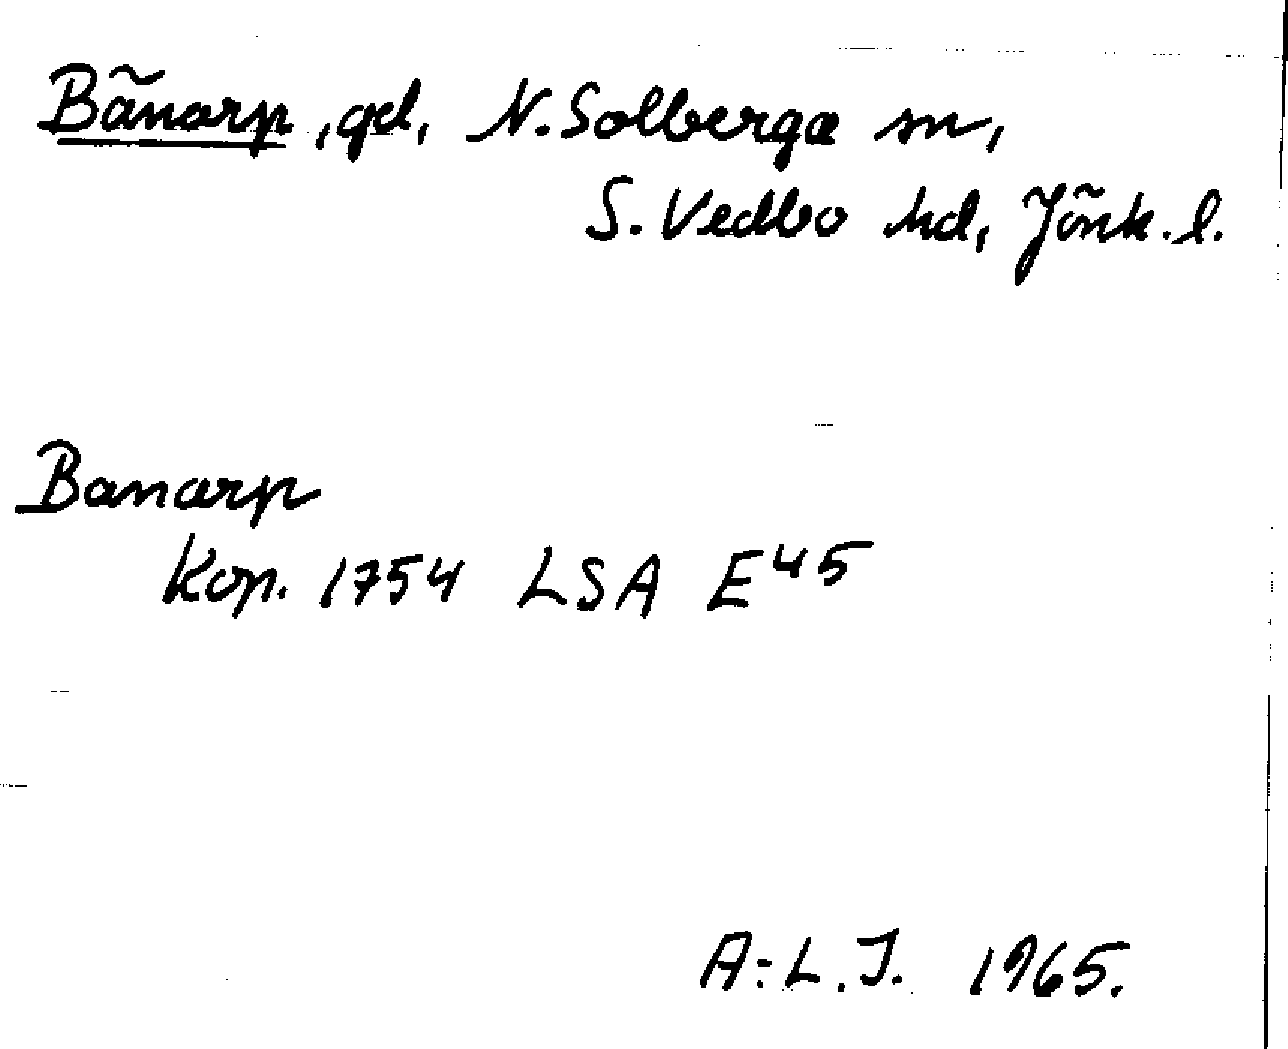 Bänarp, gd, N. Solberga sn,
S. Vedbo hd, Jönk. l.
Banarp
Kop. 1754 LSA E45
A:L.J. 1965.